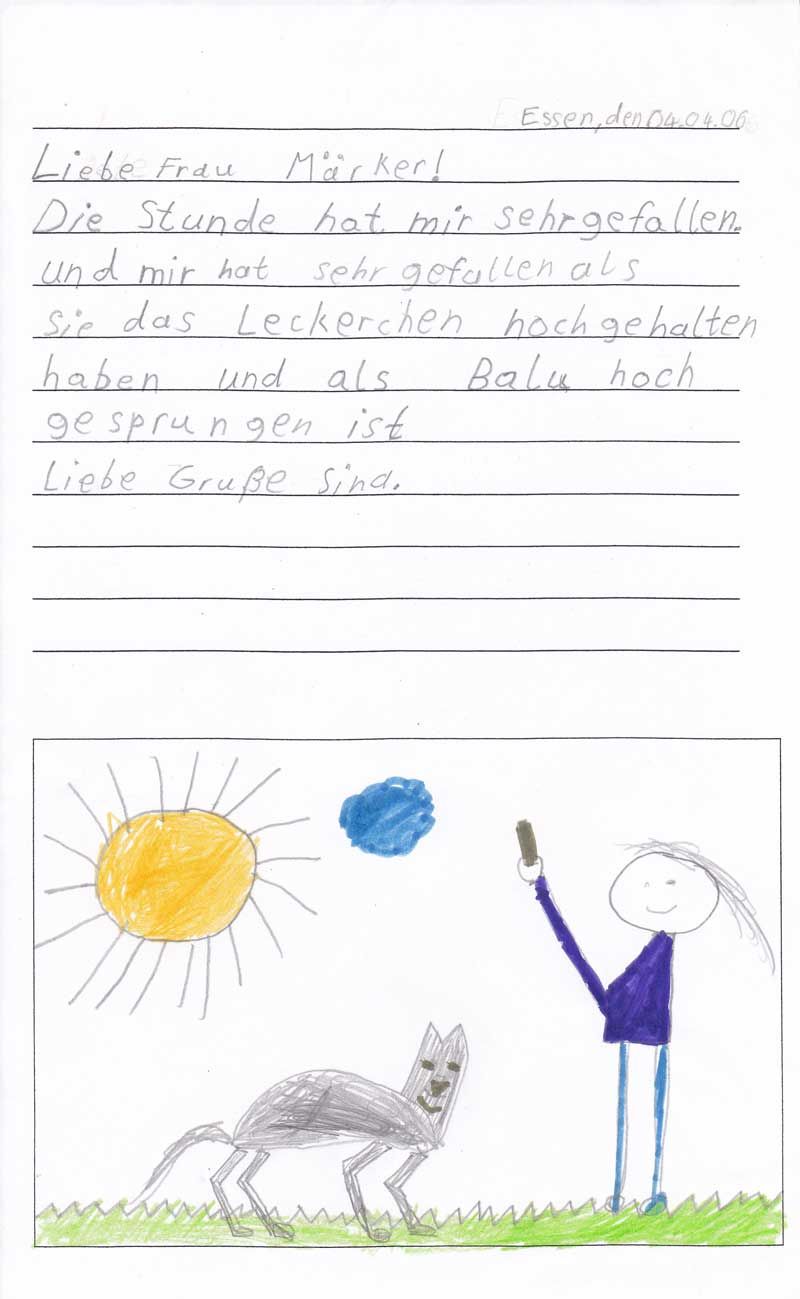 Essen, den 04.04.06
Liebe Frau Märker!
Die Stunde hat mir sehr gefallen.
und mir hat sehr gefallen als
sie das Leckerchen hoch gehalten
haben und als Balu hoch
gesprungen ist
Liebe Gruße sind.